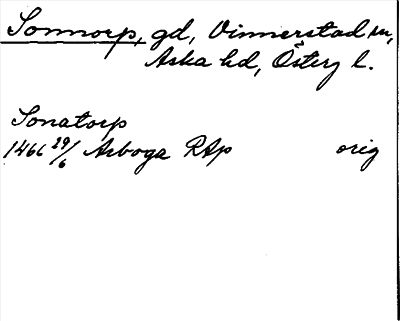 Somnorp, gd, Vinnerstad sn,
Aska hd, Österg l.
Sonatorp
1466 29/6 Arboga RAp orig